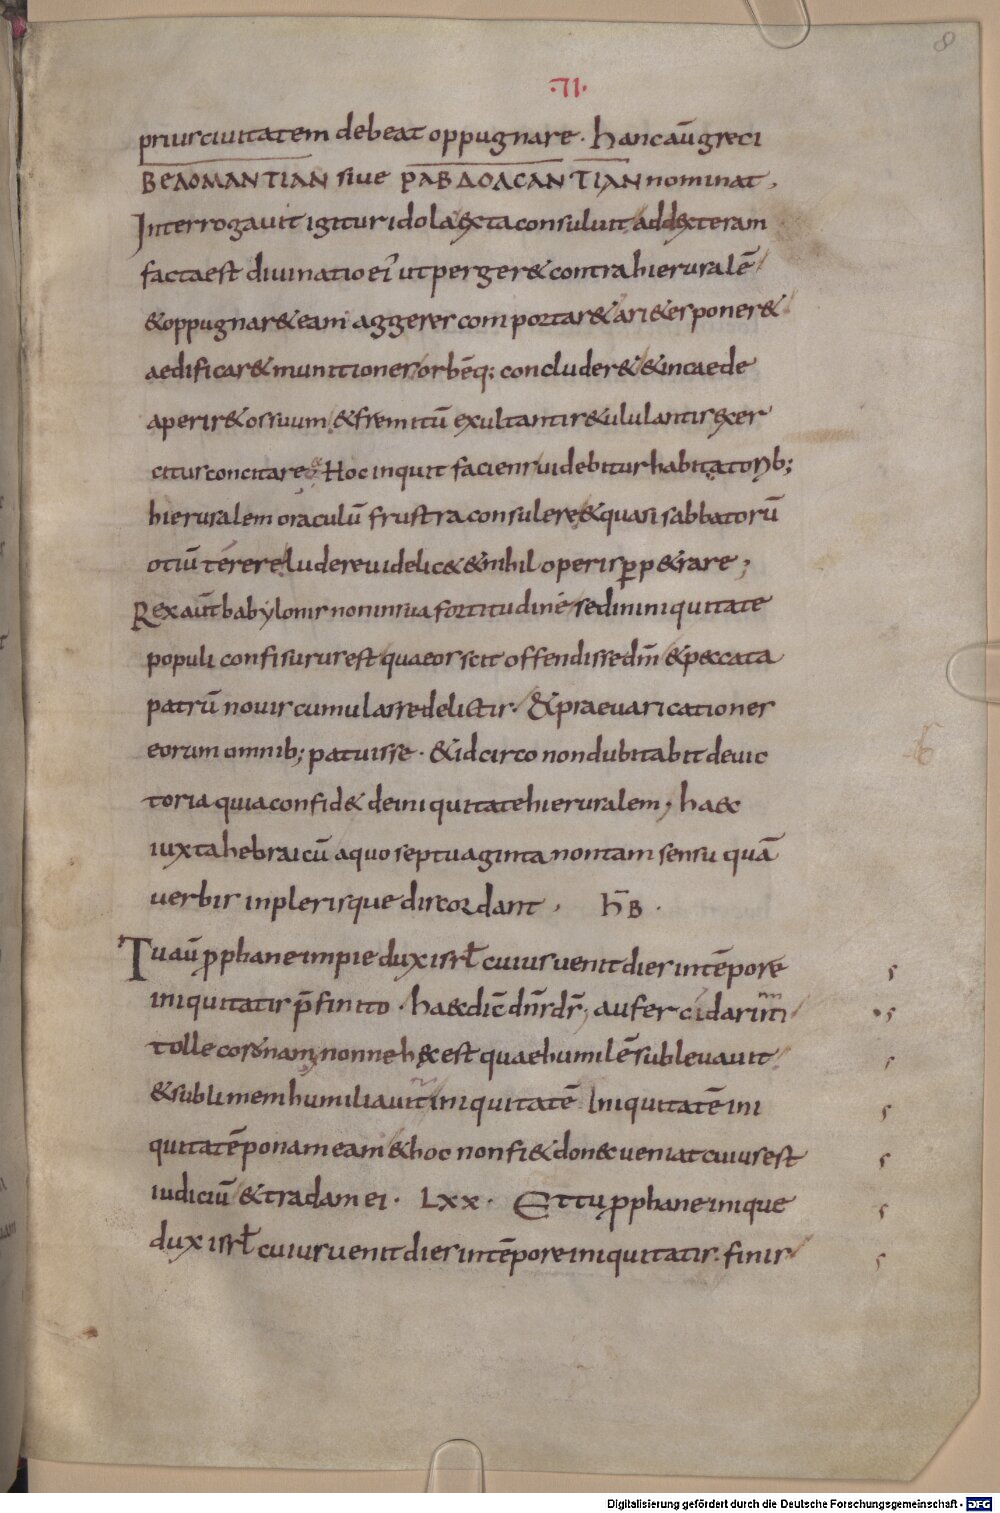 8
·VII·
priusciuitatem debeat oppugnare· hancaūgreci
ΒΕΛΟΜΑΝΤΙΑΝ siue ΡΑΒΔΟΛCΑΝΤΙΑΝ nominat,
Interrogauit igitur idola&exta consuluit/addexteram
factaest diuinatio ei' ut perger& contra hierusalē/
&oppugnar&eam aggeres comportar&ari&esponer&/
aedificar&munitiones/orbēq; concluder&/&incaede
aperir&ossuum/&fremitū exultantis&ululantis&exer
citus concitare& Hoc inquit faciens uidebitur habitatorib;
hierusalem oraculū frustra consulere&quasi sabbatorū
otiū terere/ludere uidelic& &nihil operis pp&rare;
Rex aūt babylonis non insua fortitudine/sed in iniquitate
populi confisurus est/quae os scit offendisse dm̄ &peccata
patrū nouis cumulasse delictis· &praeuaricationes
eorum omnib; patuisse· &idcirco non dubitabit deuic
toria quia confid& deiniquitate hierusalem; haec
iuxta hebraicū aquo septuaginta non tam sensu quā
uerbis inplerisque discordant, h̄B·
Tu aū pphane impie dux isrł cuius uenit dies intēpore
iniquitatis p̄finito· haec dic̄ dn̄s ds̄; aufer cidarim/
tolle coronam, nonne hęc est quae humilē subleuauit/
&sublimem humiliauit/iniquitatē Iniquitatē ini
quitatē ponam eam/&hoc non fi& donec ueniat cuius est
iudiciū/&tradam ei· Lxx· Et tu pphane inique
dux isrł cuius uenit dies intēpore iniquitatis· finis/
Digitalisierung gefördert durch die Deutsche Forschungsgemeinschaft - DFG